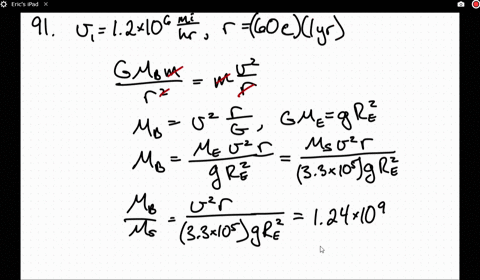 Eric's iPad
91. v₁ = 1.2×10⁶ mi/hr, r = (60c)(1yr)
G M_B m / r² = m v²/r
M_B = v² r/G, G M_E = g R_E²
M_B = M_E v² r / g R_E² = M_S v² r / (3.3×10⁵) g R_E²
M_B/M_S = v² r / (3.3×10⁵) g R_E² = 1.24×10⁹